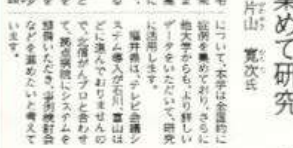 集めて研究
片山 寛次氏
について、本学は全国的に
症例を集めており、さらに
他大学からも、より詳しい
データをいただいて、研究
に活用します。
福井県は、テレビ会議シ
ステム導入が石川、富山ほ
どに進んでおりませんの
で、北信がんプロと合わせ
て、拠点病院にシステムを
整備いただき、症例検討会
などを進めたいと考えて
います。